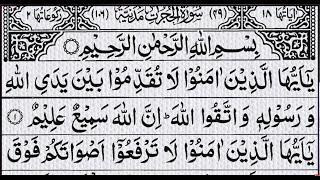 اٰیَاتُهَا ١٨ (٤٩) سُوْرَةُ الْحُجُرٰتِ مَدَنِیَّةٌ (١٠٦) رُكُوْعَاتُهَا ٢
بِسْمِ اللّٰهِ الرَّحْمٰنِ الرَّحِیْمِ
یٰۤاَیُّهَا الَّذِیْنَ اٰمَنُوْا لَا تُقَدِّمُوْا بَیْنَ یَدَیِ اللّٰهِ
وَ رَسُوْلِهٖ وَ اتَّقُوا اللّٰهَ ؕ اِنَّ اللّٰهَ سَمِیْعٌ عَلِیْمٌ ١
یٰۤاَیُّهَا الَّذِیْنَ اٰمَنُوْا لَا تَرْفَعُوْۤا اَصْوَاتَكُمْ فَوْقَ